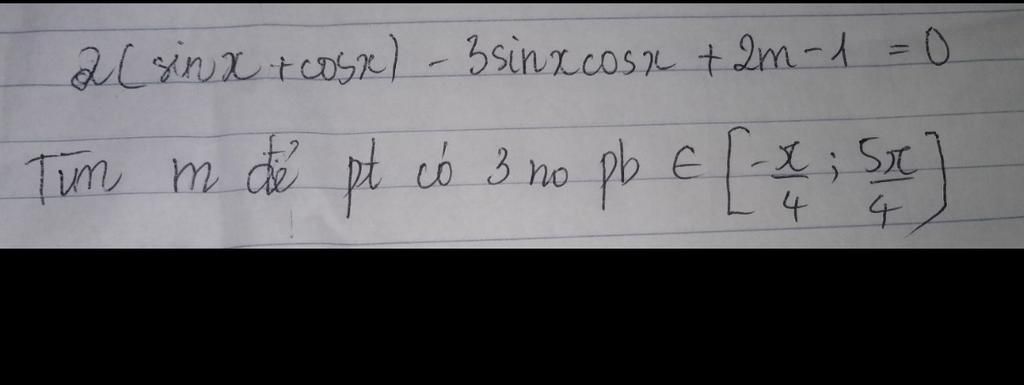 2(sinx + cosx) - 3sinxcosx + 2m - 1 = 0
Tìm m để pt có 3 no pb ∈ [-π/4 ; 5π/4]